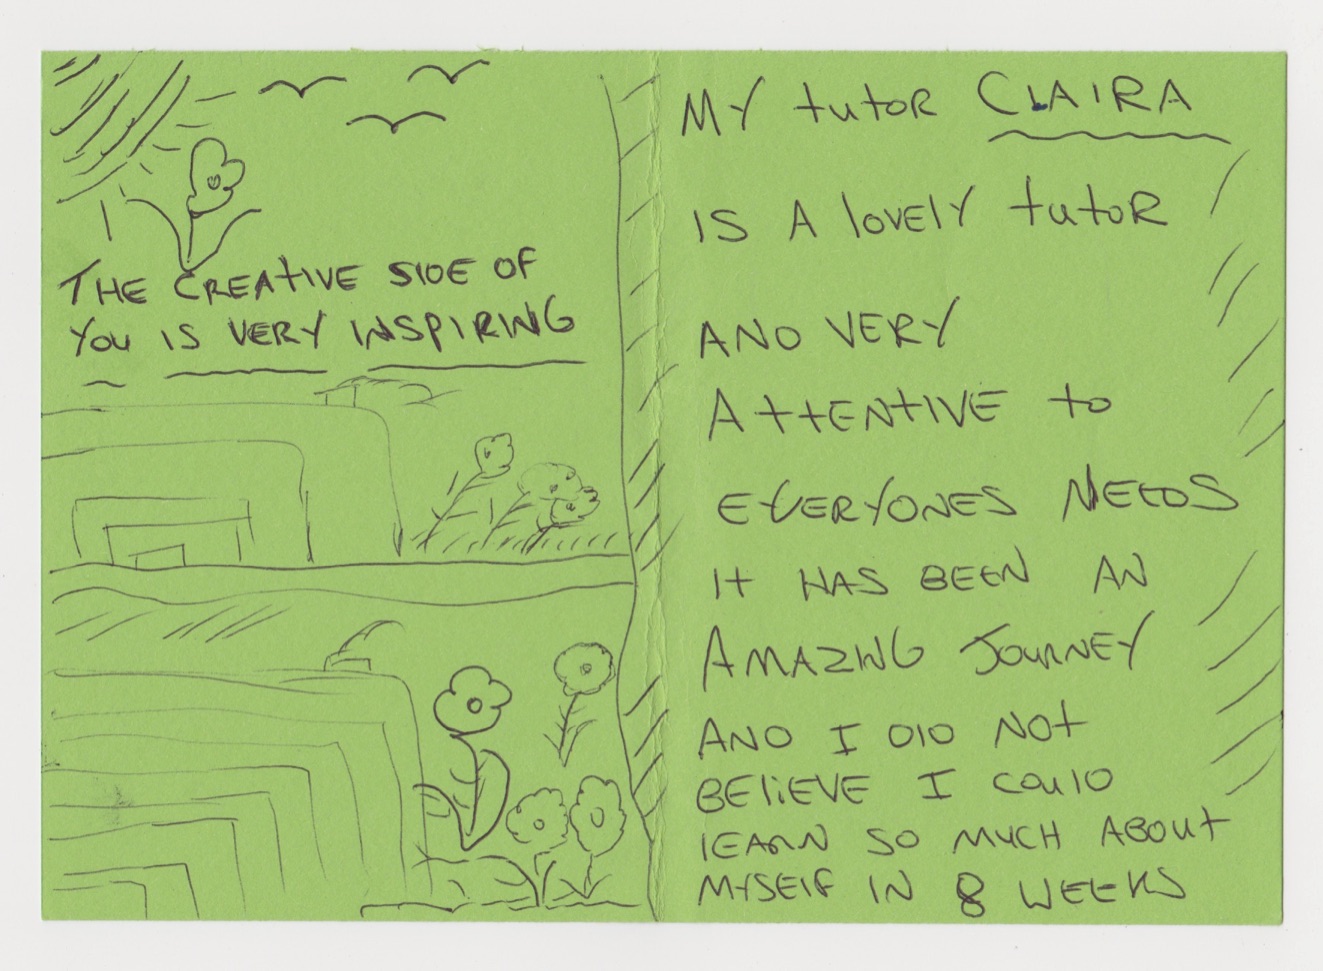 THE CREATIVE SIDE OF
YOU IS VERY INSPIRING
MY tutoR CLAIRA
IS A lovELY tutoR
AND VERY
AttENtIVE to
EVERYONES NEEDS
It HAS BEEN AN
AMAZING JOURNEY
AND I DID NOt
BEliEVE I COulD
lEARN SO MUCH ABOUt
MYSElF IN 8 WEEKS